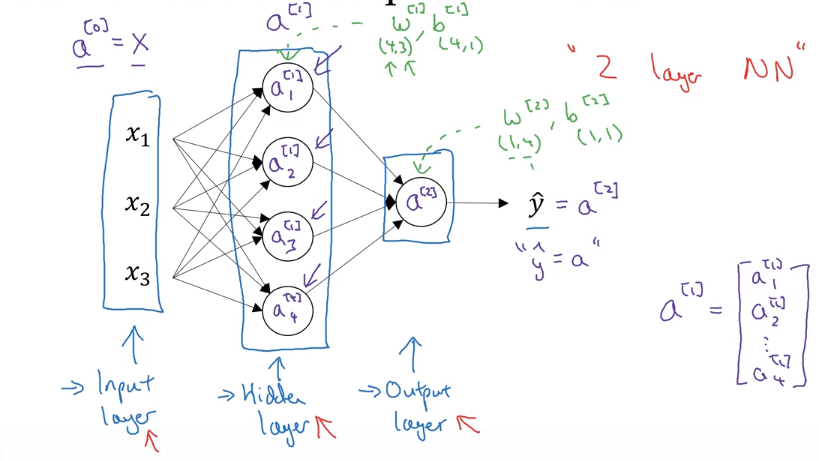 a^[1]
w^[1], b^[1]
(4,3) (4,1)
a^[0] = X
"2 layer NN"
x₁
x₂
x₃
a₁^[1]
a₂^[1]
a₃^[1]
a₄^[4]
w^[2], b^[2]
(1,4) (1,1)
a^[2]
ŷ = a^[2]
"ŷ = a"
a^[1] = [a₁^[1]
a₂^[1]
⋮
a₄^[1]]
→ Input
layer
→ Hidden
layer
→ Output
layer